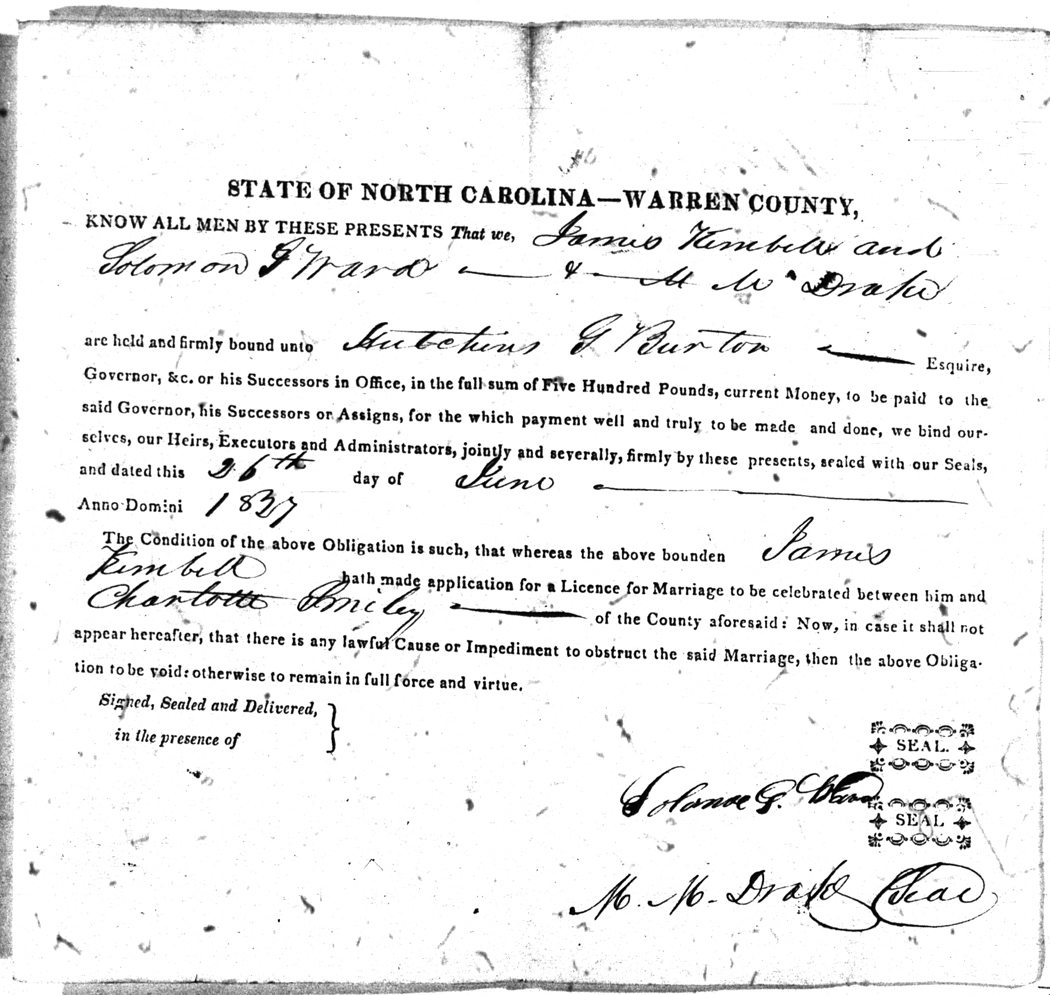 STATE OF NORTH CAROLINA—WARREN COUNTY,
KNOW ALL MEN BY THESE PRESENTS That we, James Kimbell and
Solomon G Ward — & — M Mc Drake
are held and firmly bound unto Hutchins G Burton — Esquire,
Governor, &c. or his Successors in Office, in the full sum of Five Hundred Pounds, current Money, to be paid to the
said Governor, his Successors or Assigns, for the which payment well and truly to be made and done, we bind our-
selves, our Heirs, Executors and Administrators, jointly and severally, firmly by these presents, sealed with our Seals,
and dated this 26th day of June —
Anno Domini 1827
The Condition of the above Obligation is such, that whereas the above bounden James
Kimbell hath made application for a Licence for Marriage to be celebrated between him and
Charlotte Smiley — of the County aforesaid: Now, in case it shall not
appear hereafter, that there is any lawful Cause or Impediment to obstruct the said Marriage, then the above Obliga-
tion to be void: otherwise to remain in full force and virtue.
Signed, Sealed and Delivered,
in the presence of
SEAL.
G. Ward
SEAL
M. M. Drake Seal